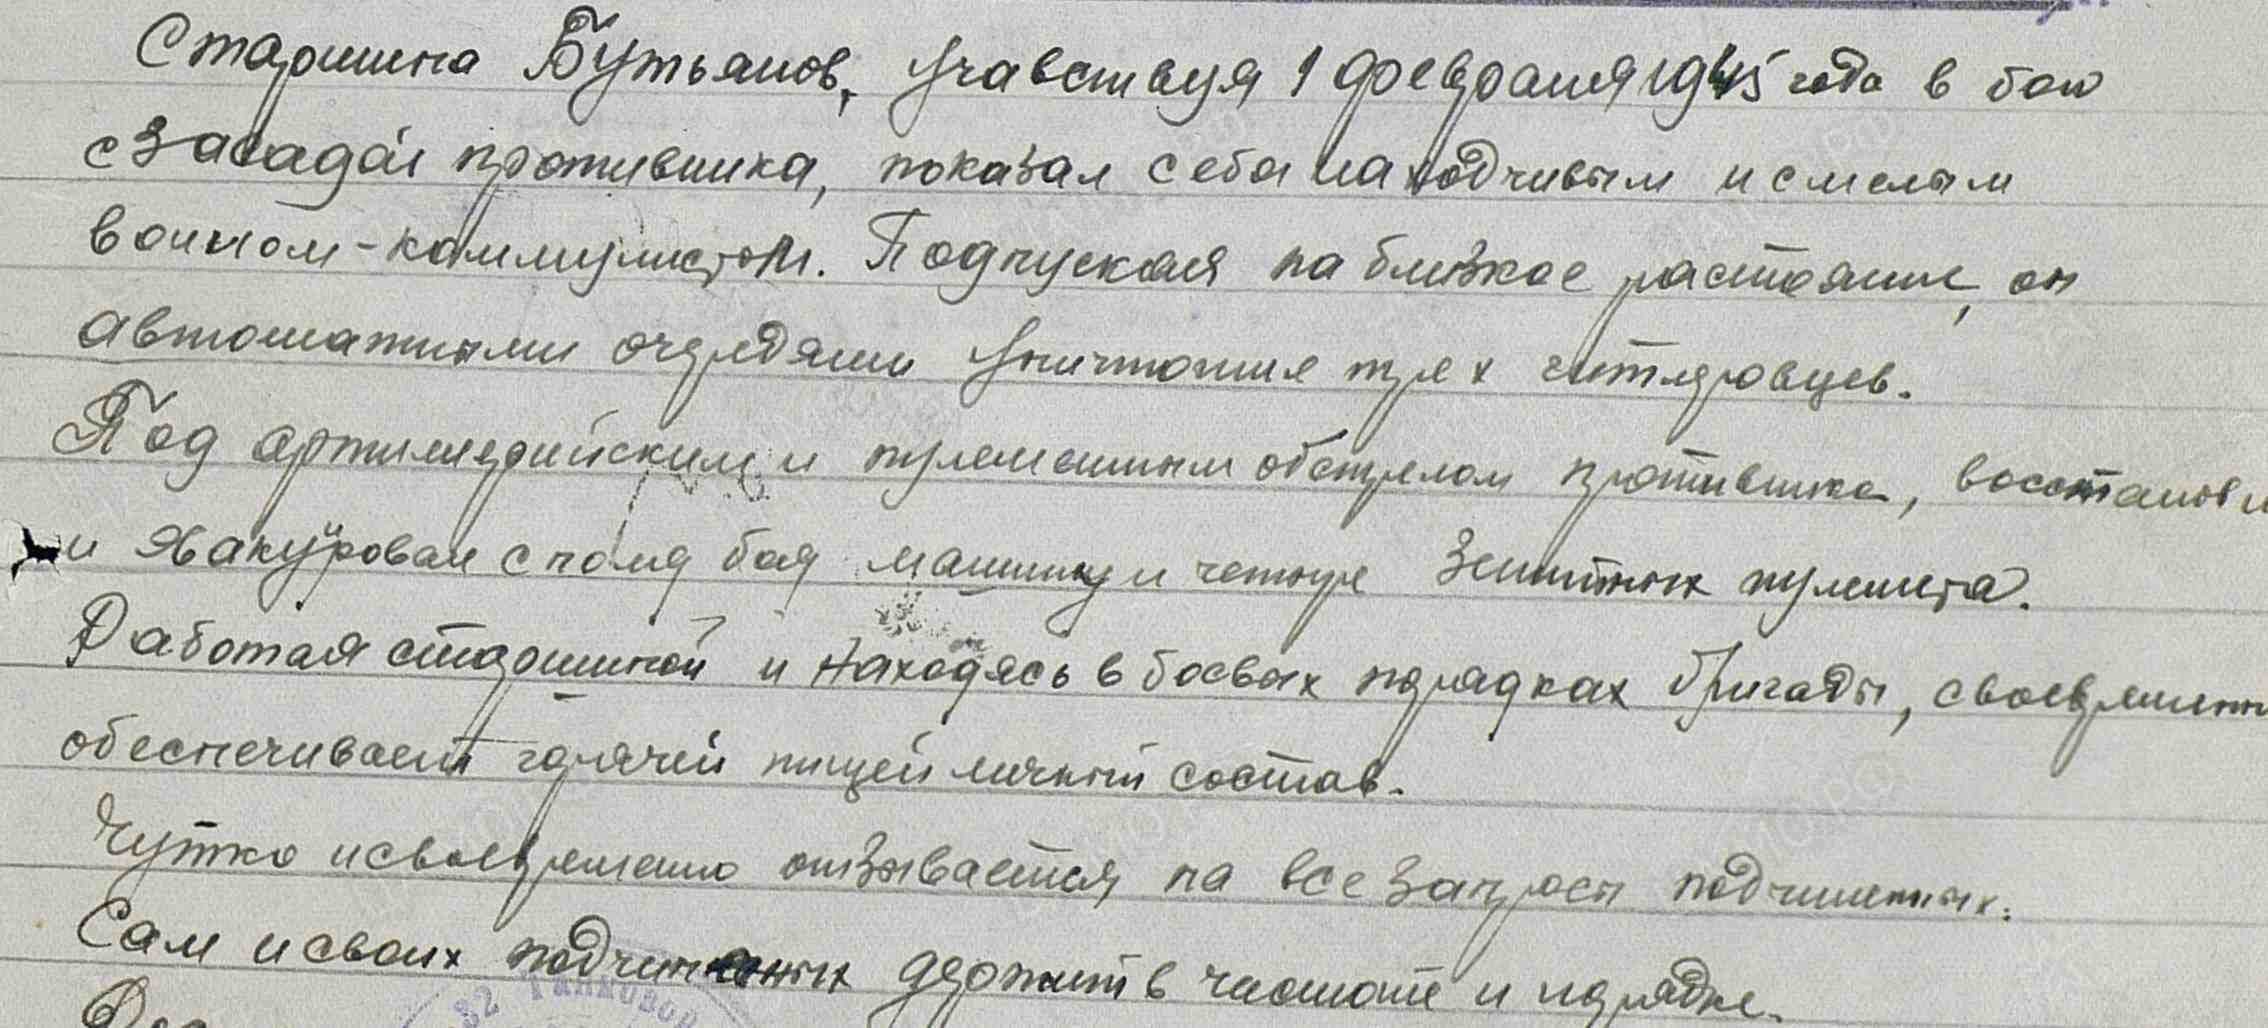 Старшина Бутьянов, учавствуя 1 февраля 1945 года в бою
с засадой противника, показал себя находчивым и смелым
воином-коммунистом. Подпуская на близкое растояние, он
автоматными очередями уничтожил трех гитлеровцев.
Под артиллерийским и пулеметным обстрелом противника, восстанови
и эвакуировал с поля боя машину и четыре зенитных пулемета.
Работая старшиной и находясь в боевых порядках бригады, своевременн
обеспечивает горячей пищей личный состав.
Чутко и своевременно отзывается на все запросы подчиненных.
Сам и своих подчиненных держит в чистоте и порядке.
32 танковой